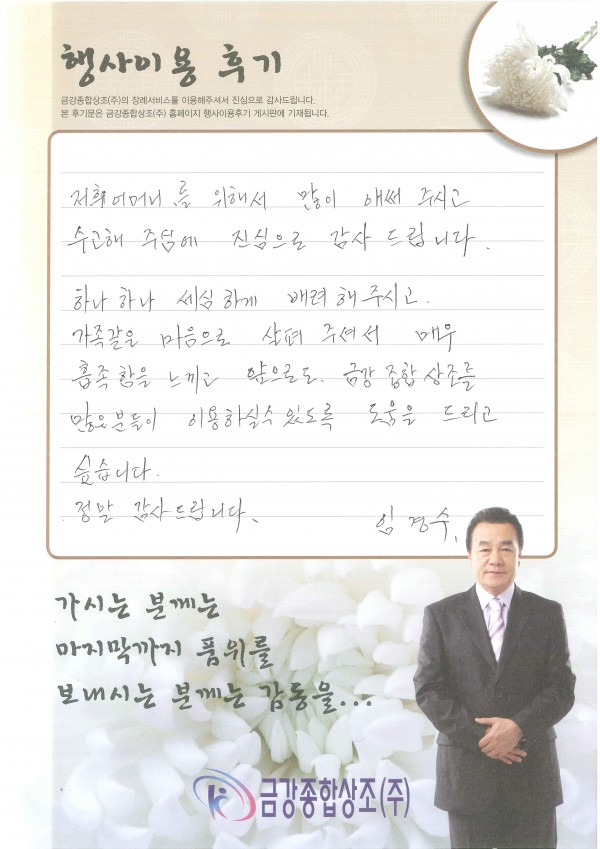 행사이용 후기
금강종합상조(주)의 장례서비스를 이용해주셔서 진심으로 감사드립니다.
본 후기문은 금강종합상조(주) 홈페이지 행사이용후기 게시판에 기재됩니다.
저희어머니를 위해서 많이 애써 주시고
수고해 주심에 진심으로 감사 드립니다.
하나 하나 세심하게 배려해주시고.
가족같은 마음으로 살펴 주셔서 매우
흡족함을 느끼고 앞으로도. 금강종합상조를
많은분들이 이용하실수있도록 도움을 드리고
싶습니다.
정말 감사드립니다.
임경수.
가시는 분께는
마지막까지 품위를
보내시는 분께는 감동을...
금강종합상조(주)